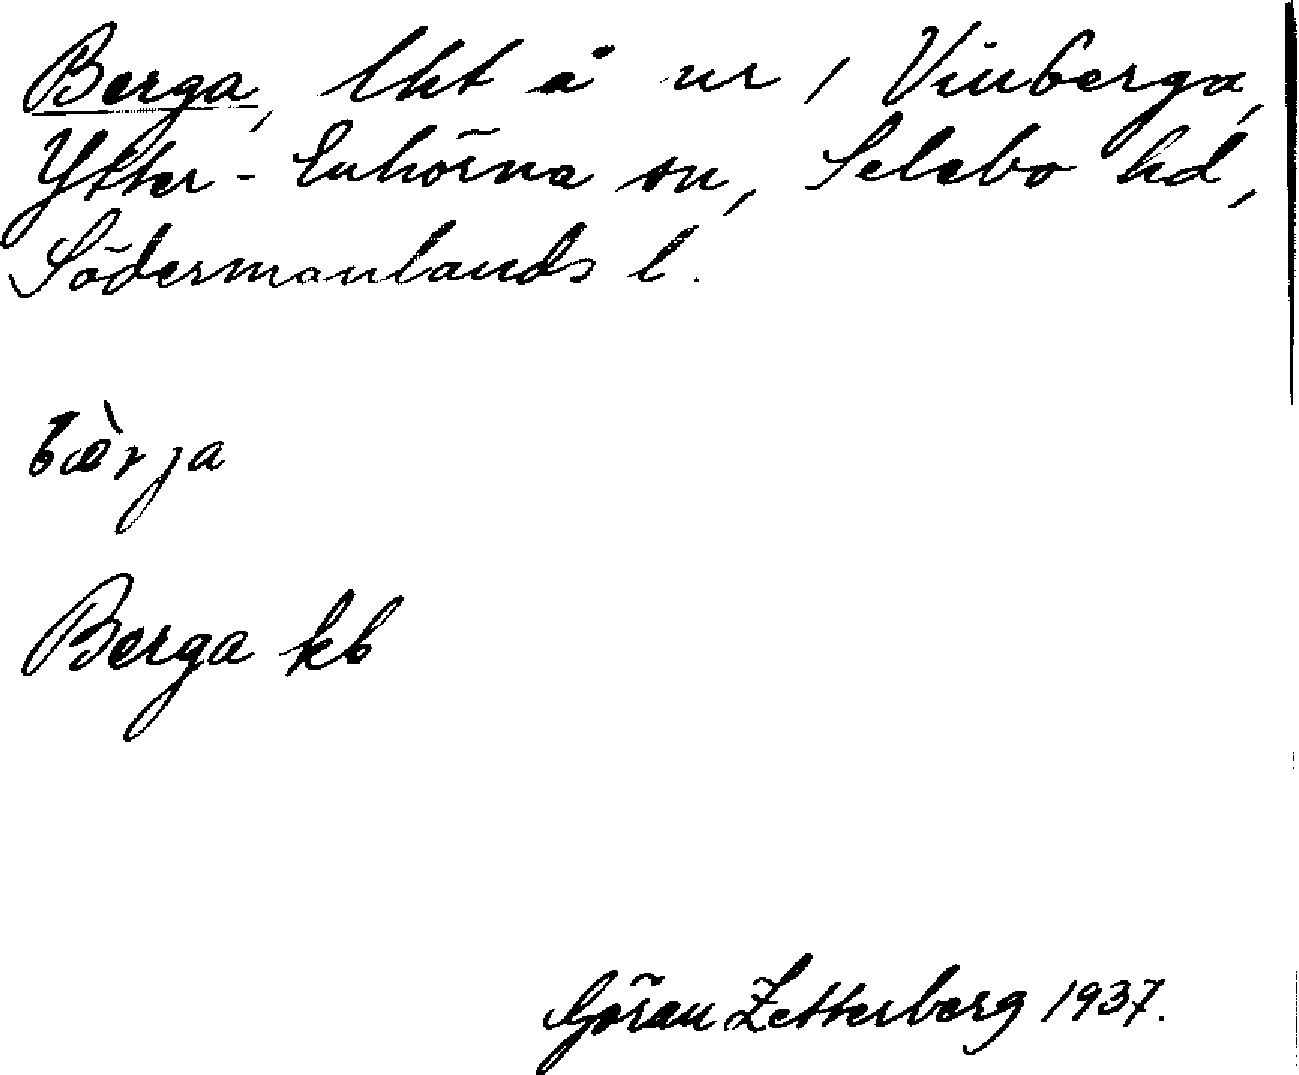 Berga, lht å nr 1 Vinberga,
Ytter-Enhörna sn, Selebo hd,
Södermanlands l.
bæ̀rja
Berga kb
Göran Zetterberg 1937.